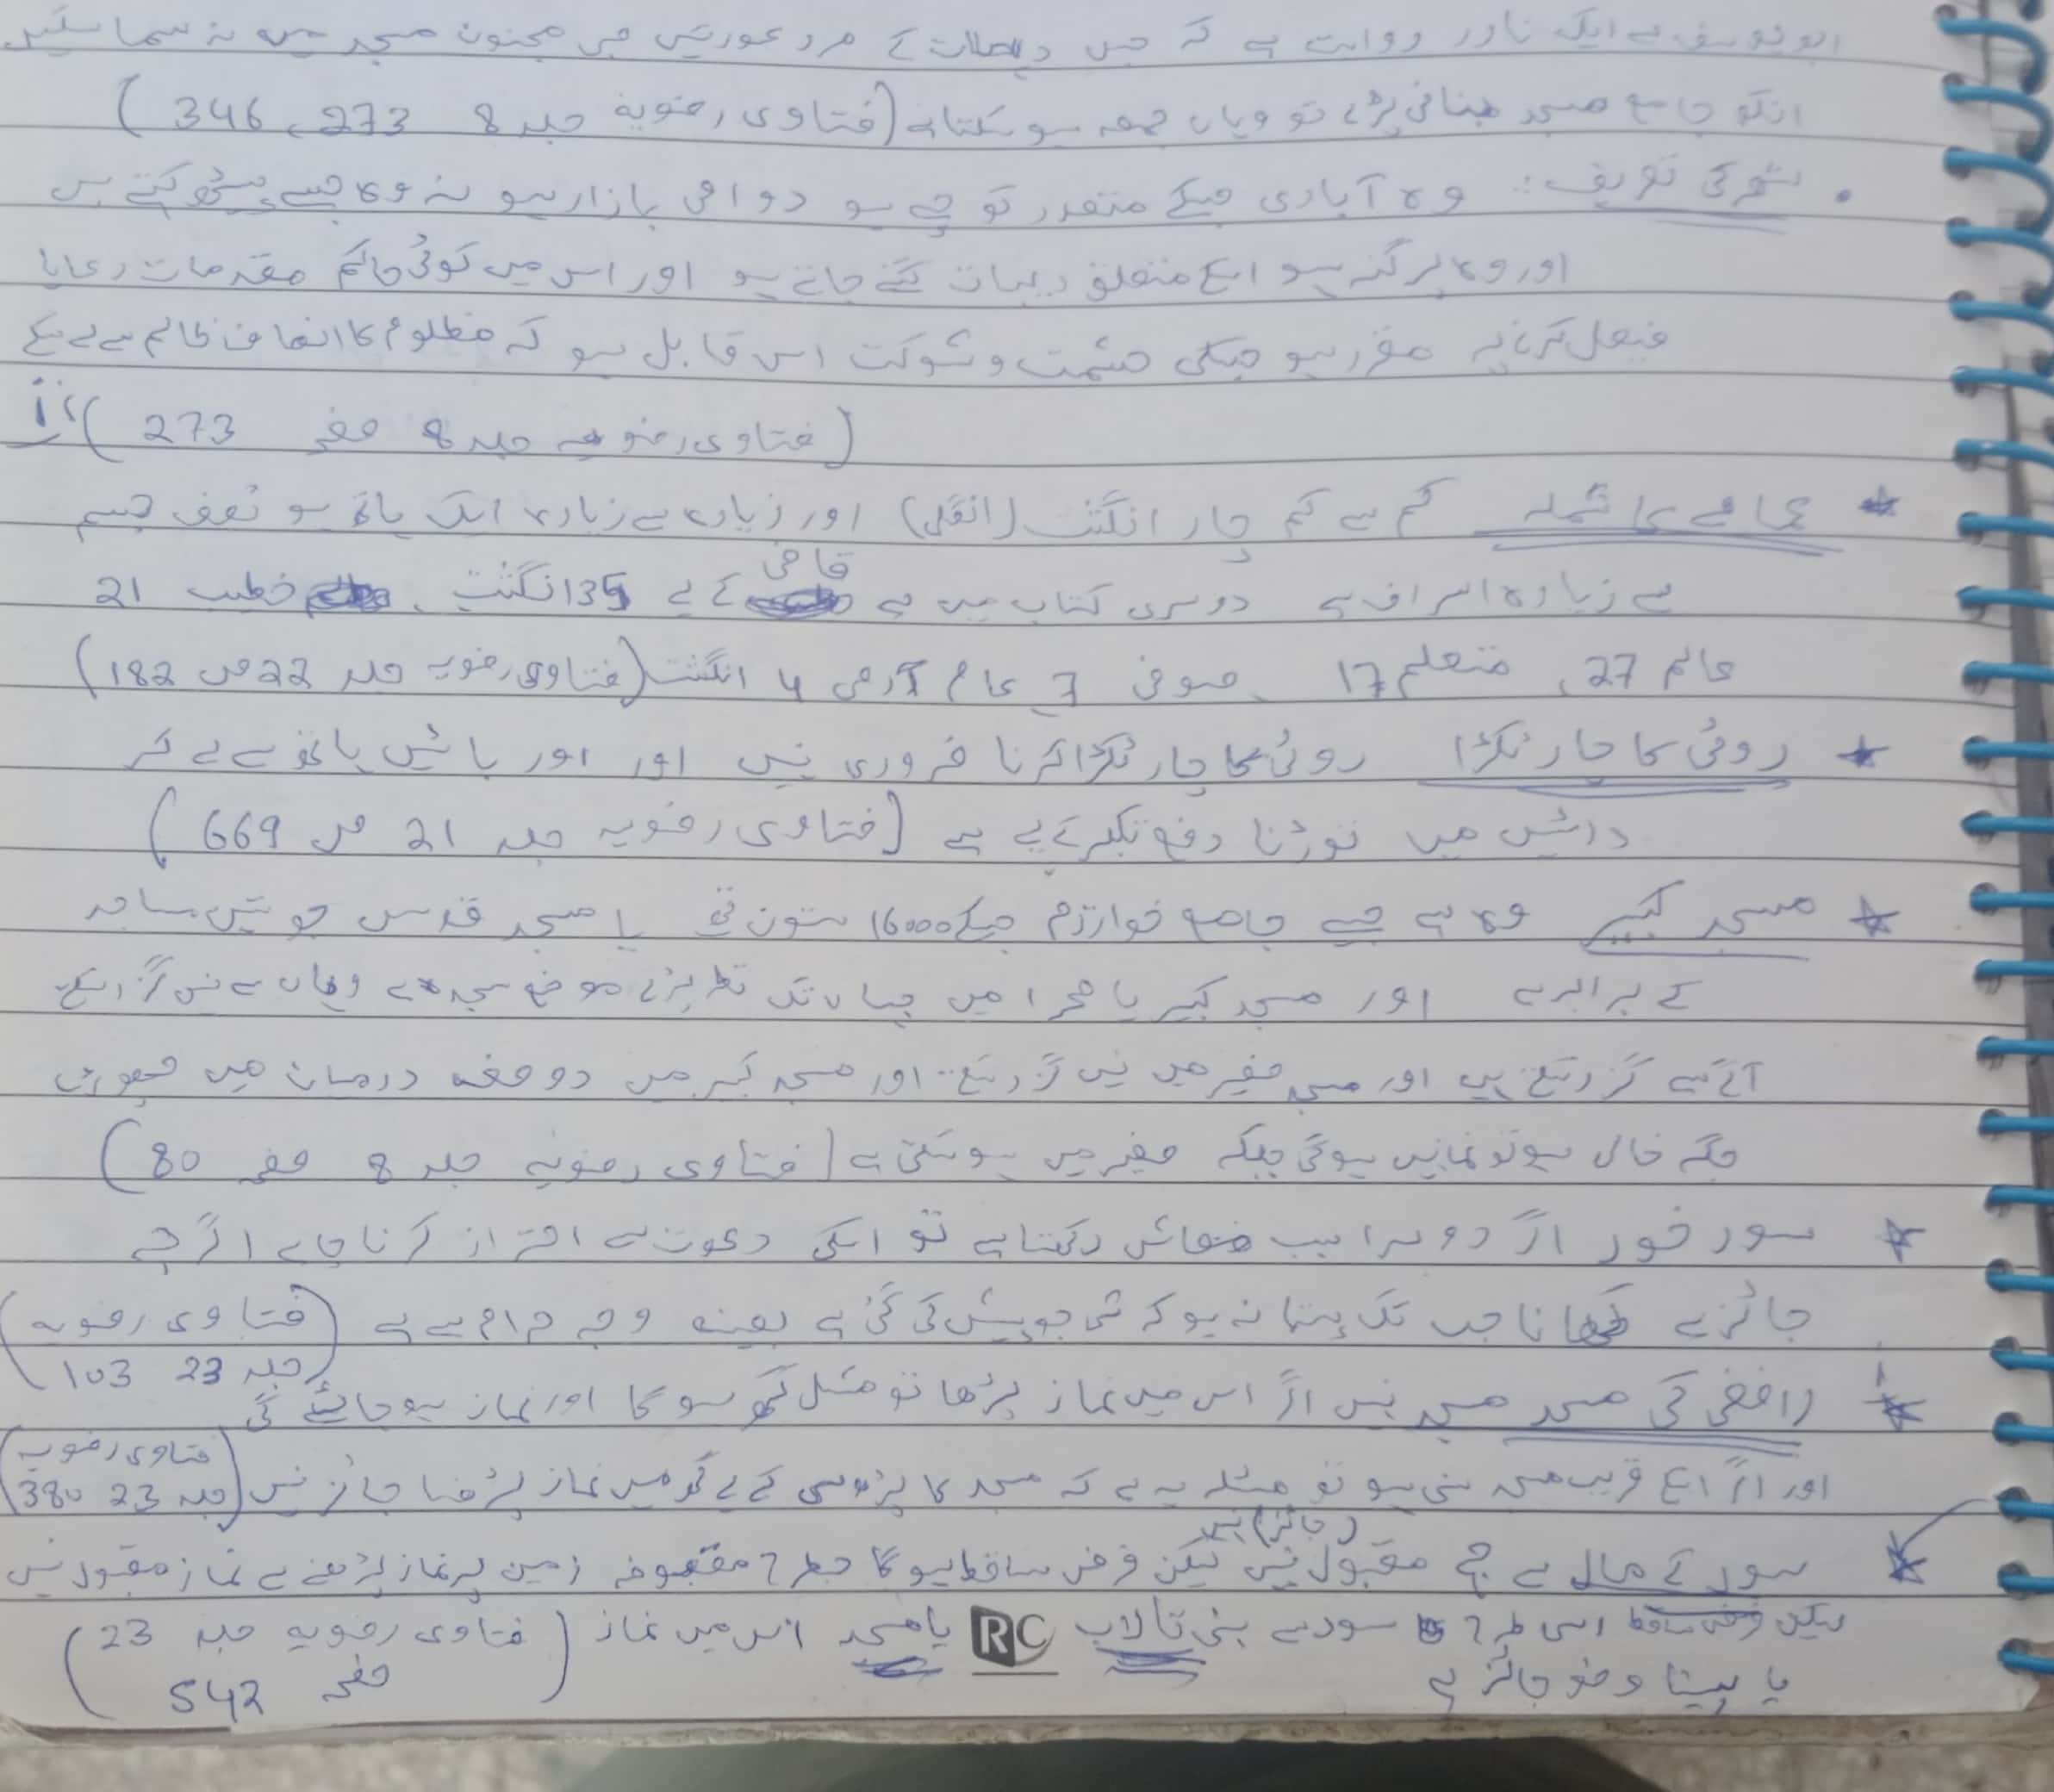 ابو یوسف سے ایک نادر روایت ہے کہ جس دیہات کے مرد عورتیں جن مجنون مسجد میں نہ سما سکیں
انکو جامع مسجد بنانی پڑے تو وہاں جمعہ ہو سکتا ہے (فتاوی رضویہ جلد 8 273، 346)
• شہر کی تعریف: وہ آبادی جسکے متعدد کوچے ہو دوامی بازار ہو نہ وہ جسے پیٹھ کہتے ہیں
اور وہ پرگنہ ہو اسکے متعلق دیہات گنے جاتے ہو اور اس میں کوئی حاکم مقدمات رعایا
فیصل کرنے پہ مقرر ہو جسکی حشمت و شوکت اس قابل ہو کہ مظلوم کا انصاف ظالم سے لے سکے
(فتاوی رضویہ جلد 8 صفحہ 273)
★ عمامے کا شملہ کم سے کم چار انگشت (انگلی) اور زیادہ سے زیادہ ایک ہاتھ ہو نصف جسم
سے زیادہ اسراف ہے دوسری کتاب میں ہے قاضی کے لے 35 انگشت، خطیب 21
عالم 27، متعلم 17، صوفی 7 عام آدمی 4 انگشت (فتاوی رضویہ جلد 22 ص 182)
★ روٹی کا چار ٹکڑا روٹی کا چار ٹکڑا کرنا ضروری نہیں اور اور بائیں ہاتھ سے لے کر
دائیں میں توڑنا دفع تکبر کے لیے ہے (فتاوی رضویہ جلد 21 ص 669)
★ مسجد کبیر وہ ہے جیسے جامع خوارزم جسکے 16000 ستون تھے یا مسجد قدس جو تین مساجد
کے برابر ہے اور مسجد کبیر یا صحرا میں جہاں تک نظر پڑے موضع سجدہ سے وہاں سے نہیں گزر سکتے
آگے سے گزر سکتے ہیں اور مسجد صغیر میں نہیں گزر سکتے اور مسجد کبیر میں دو صف درمیان میں چھوڑی
جگہ خالی ہو تو نماز نہیں ہوگی جبکہ صغیر میں ہو سکتی ہے (فتاوی رضویہ جلد 8 صفحہ 80)
★ سود خور اگر دوسرا سبب معاش رکھتا ہے تو اسکی دعوت سے احتراز کرنا چاہے اگرچے
جائز ہے کھانا جب تک پتا نہ ہو کہ شی جو پیش کی گئی ہے بعینہ وجہ حرام سے ہے (فتاوی رضویہ
جلد 23 103)
★ رافضی کی مسجد مسجد نہیں اگر اس میں نماز پڑھا تو مثل گھر ہوگا اور نماز ہو جائے گی
اور اگر اسکے قریب مسجد سنی ہو تو مسئلہ یہ ہے کہ مسجد کا پڑوسی کے لے گھر میں نماز پڑھنا جائز نہیں (فتاوی رضویہ جلد 23 380)
★ سود کے مال سے حج مقبول نہیں (جائز) نہیں لیکن فرض ساقط ہوگا جسطرح مقبوضہ زمین پر نماز پڑھنے سے نماز مقبول نہیں
لیکن فرض ساقط اسی طرح سود سے بنی تالاب یا مسجد اس میں نماز (فتاوی رضویہ جلد 23
یا پینا وضو جائز ہے صفحہ 542)
RC